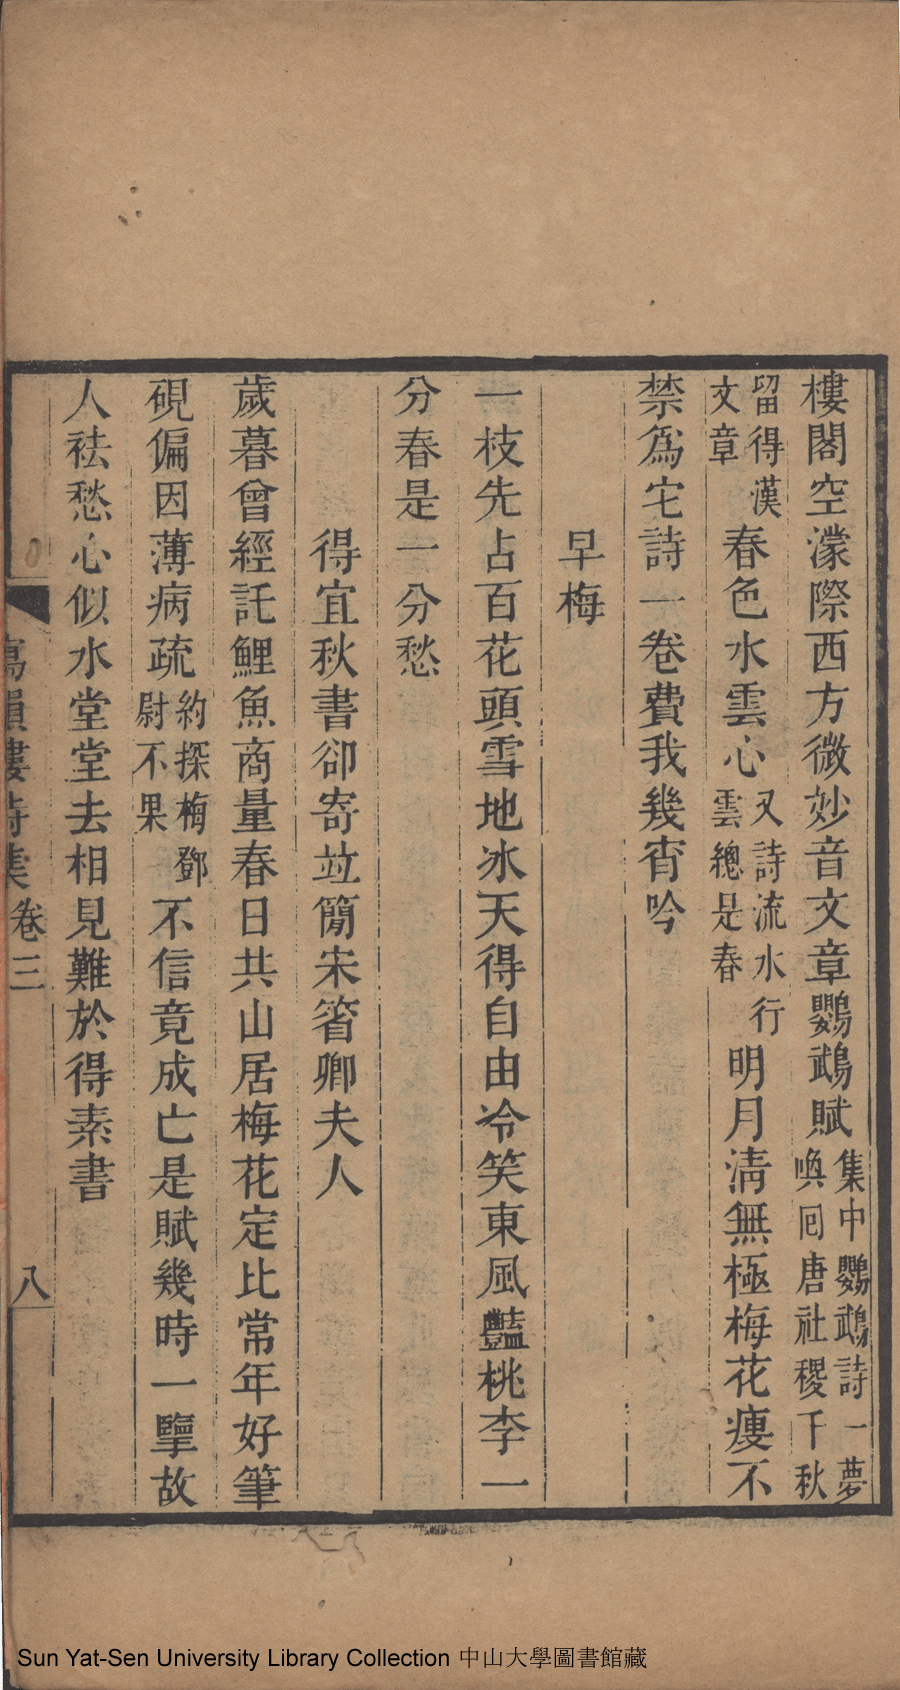 樓閣空濛際西方微妙音文章鸚鵡賦集中鸚鵡詩一夢喚囘唐社稷千秋
留得漢文章春色水雲心又詩流水行雲總是春明月淸無極梅花瘦不
禁爲宅詩一卷費我幾宵吟
早梅
一枝先占百花頭雪地冰天得自由冷笑東風豔桃李一
分春是一分愁
得宜秋書卻寄竝簡宋䈂卿夫人
歲暮曾經託鯉魚商量春日共山居梅花定比常年好筆
硯偏因薄病疏約探梅鄧尉不果不信竟成亡是賦幾時一擥故
人祛愁心似水堂堂去相見難於得素書
寫韻樓詩集卷三
八
Sun Yat-Sen University Library Collection 中山大學圖書館藏